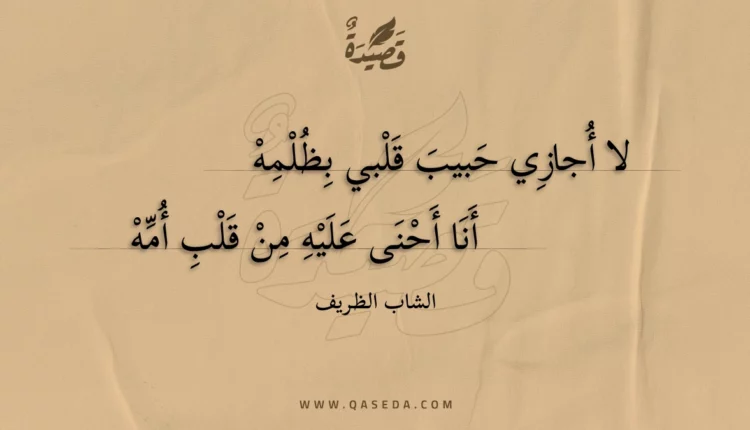 قَصِيْدَةٌ
لا أُجازِي حَبيبَ قَلْبي بِظُلْمِهْ
أَنَا أَحْنَى عَلَيْهِ مِنْ قَلْبِ أُمِّهْ
الشاب الظريف
WWW.QASEDA.COM